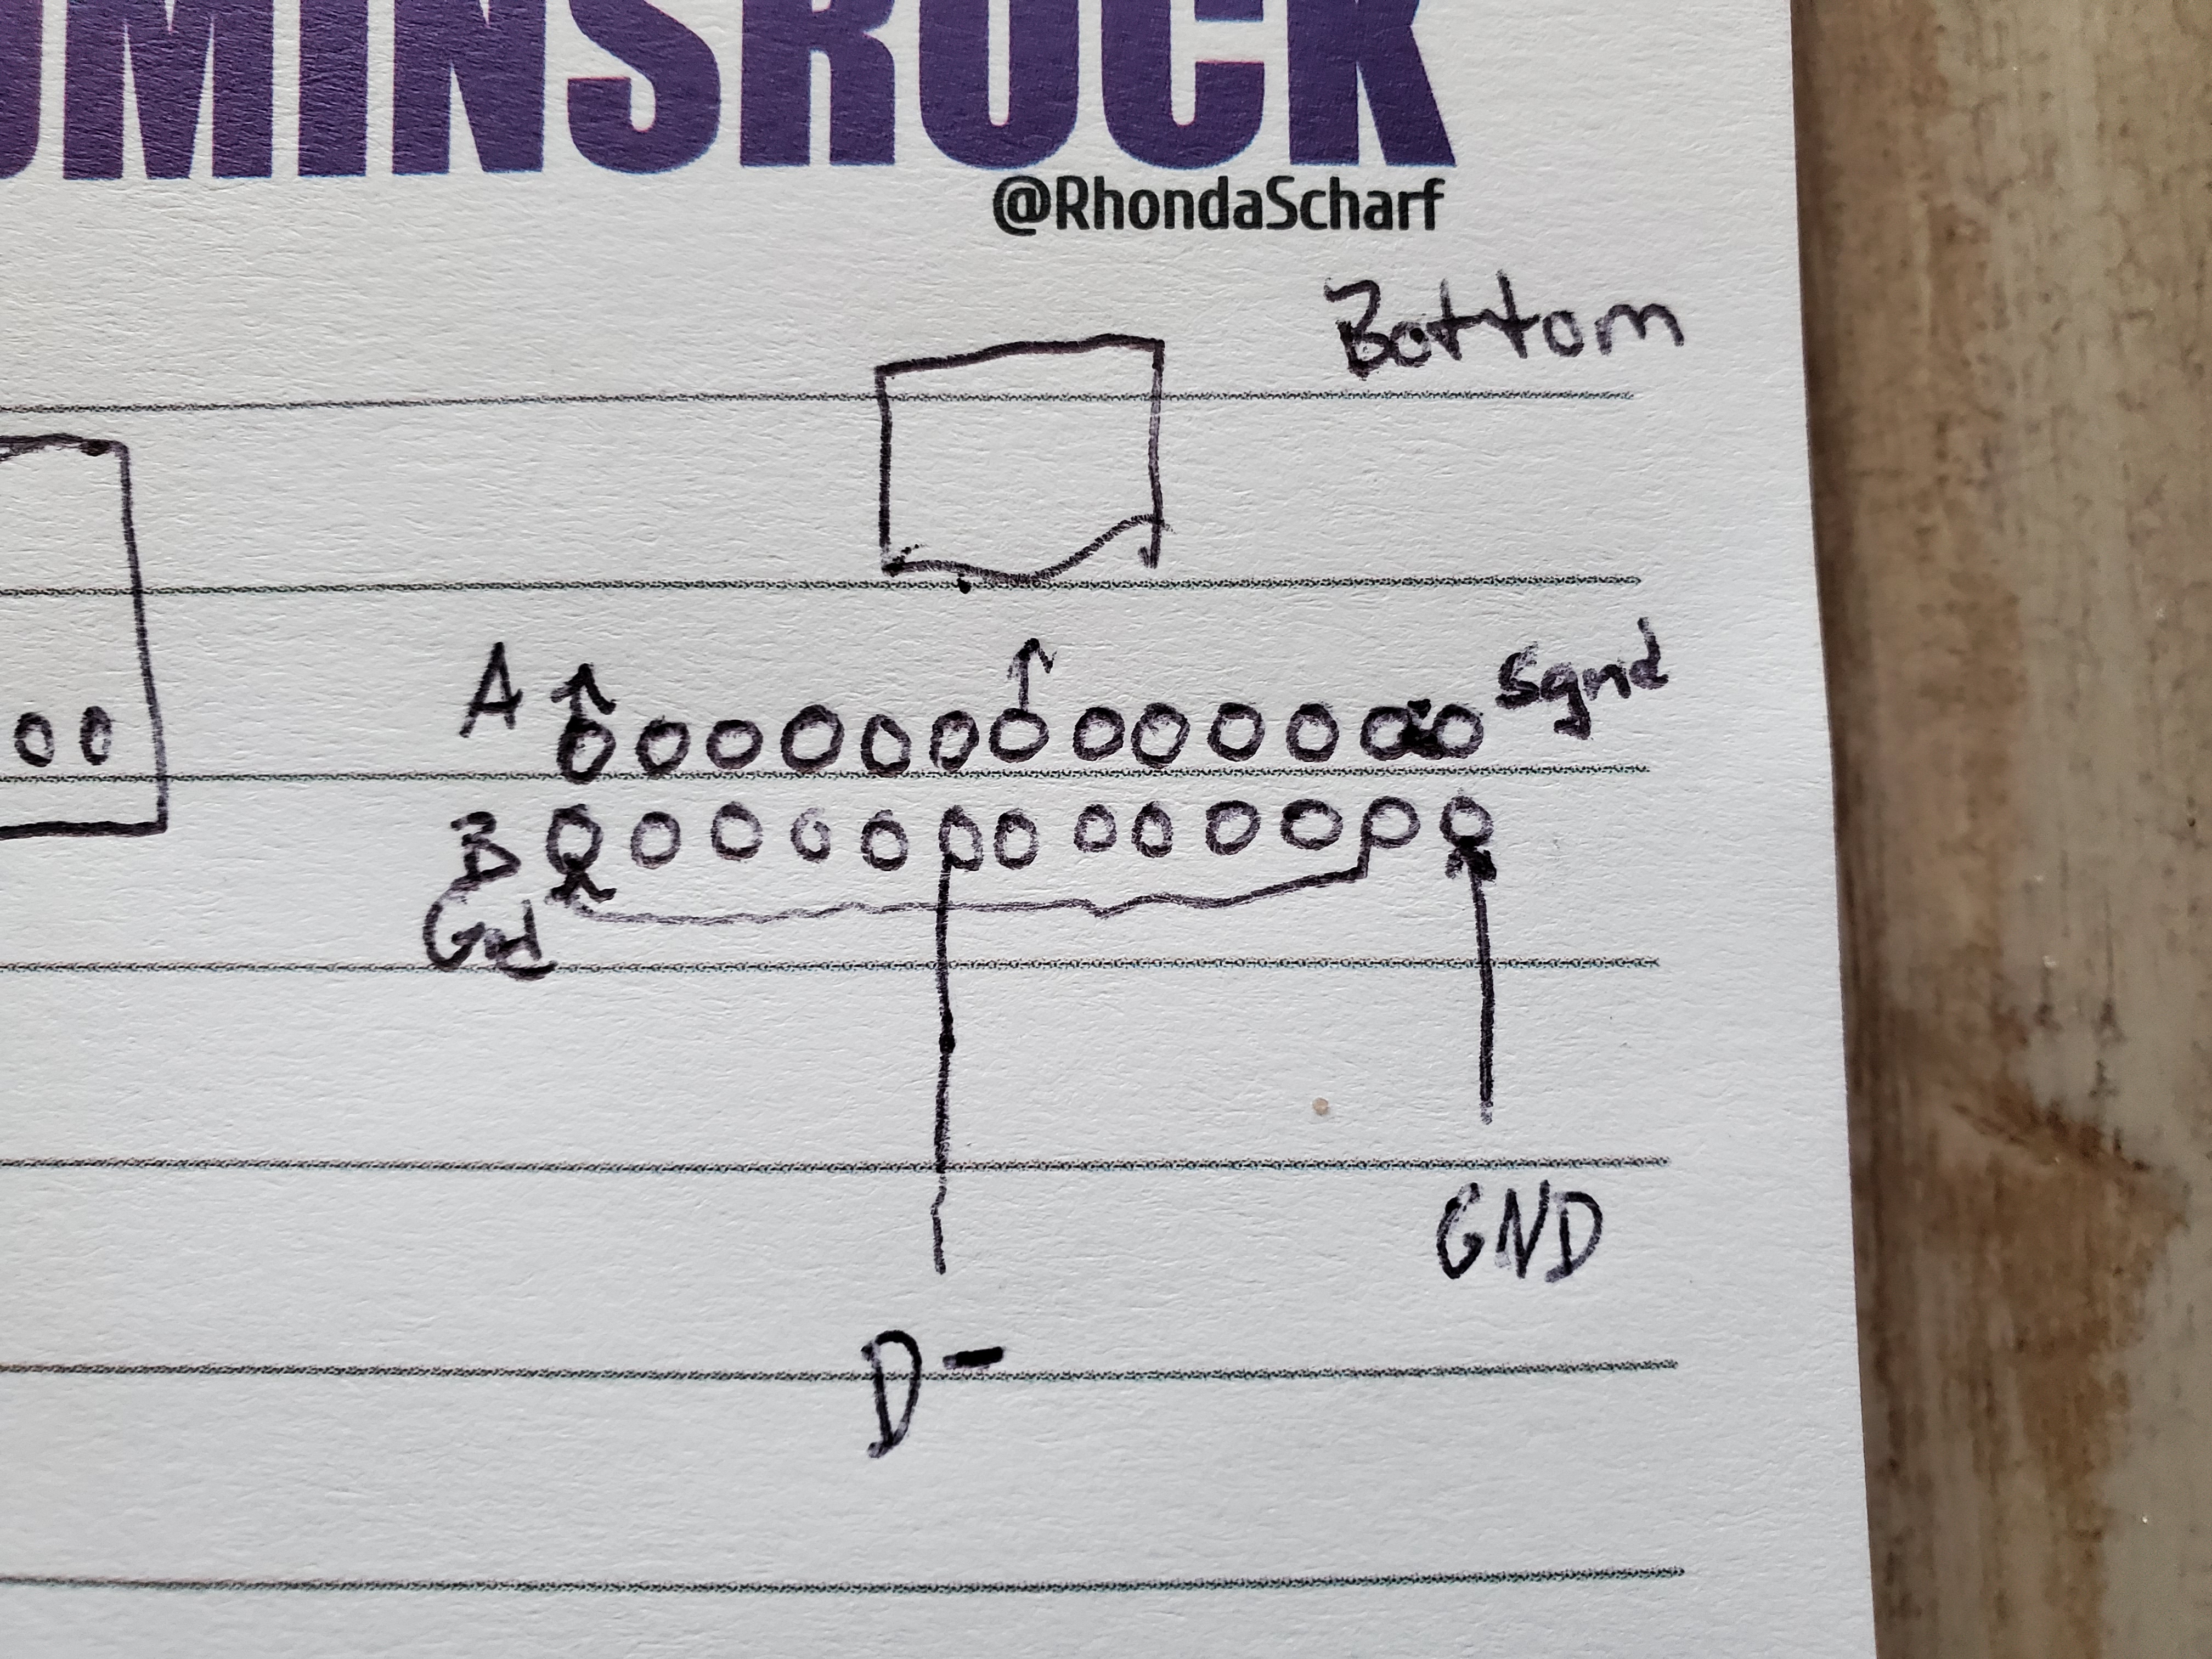 OMINSROCK
@RhondaScharf
Bottom
A Sgnd
B
Gnd
GND
D-